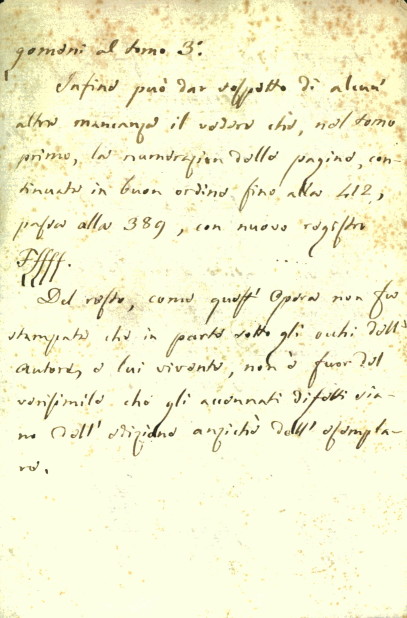 gomeni al tomo 3.°
Infine può dar sospetto di alcun'
altra mancanza il vedere che, nel tomo
primo, la numerazion delle pagine, con-
tinuata in buon ordine fino alla 412,
passa alla 389, con nuovo registro
Fffff.
Del resto, come quest' Opera non fu
stampata che in parte sotto gli occhi dell'
autore, e lui vivente, non è fuor del
verisimile che gli accennati difetti sia-
no dell' edizione anzichè dell' esempla-
re.